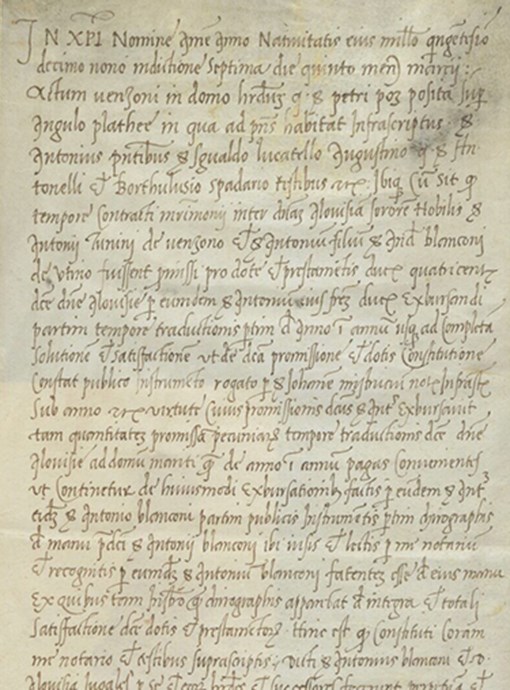 IN XPI Nomine Ame Anno Nativitatis eius millo qngētesio
decimo nono indictione septima die quinto men) marcij:
Actum venzoni in domo hrdum q. S petri posita sup
Angulo plathee in qua ad pns habitat Infrascriptus. S
Antonius pntibus S Sgualdo lucatello Augustino q. S An
tonelli Et Borthulusio spadario testibus Ibiq Cū sit q
tempore Contracti mrimonij inter Aloisiā sororē Nobilis S
Antonij de venzono Et S Antoniū filiū S blanconi
de Utino fuissent pmissi pro dote Et prestametis duc quatricent
dce dne Aloisie p eumdem S Antoniū eius frēz duc Exbursandi
partim tempore traductionis ptim d Anno ī annū usq ad Completā
solutionē Et satisfactionē ut de dca promissione Et dotis Constitutione
Constat publico Instrumēto rogato p S Iohanē
sub anno virtute Cuius promissionis S Ant Exbursavit
tam quantitatez promissā pecuniarz tempore traductionis dce dne
Aloisie ad domū mariti q de anno ī annū pagas Convenientes
ut Continetur de huiusmodi Exbursationibz factis p eundem S Ant
S Antonio blanconi partim publicis Instrumētis ptim chirographis
d manu S Antonij blanconi ibi visis Et lectis p me notariū
Et recognitis p eumdz S Antoniū blanconi fatentez esse d eius manu
Ex quibus chirographis apparebat d integra Et totali
satisfactione dce dotis Et prestametoz. Hinc est q Constituti Coram
me notario Et testibus suprascriptis, Antonius blanconi Et D.
Aloisia Iugales p se Et eoz Et successores